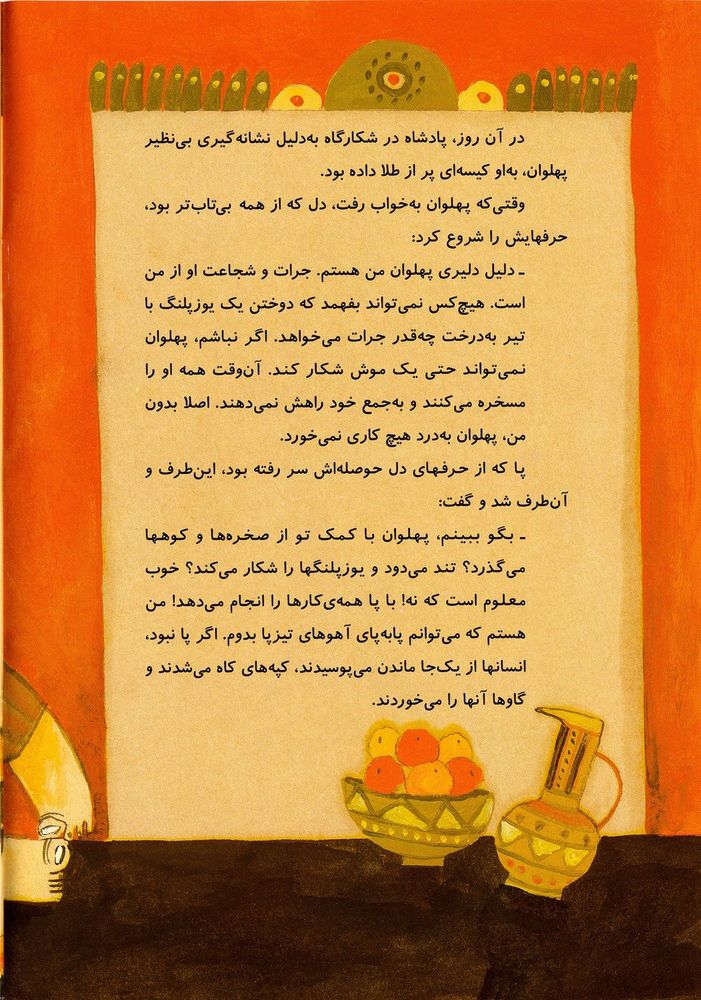 در آن روز، پادشاه در شکارگاه به‌دلیل نشانه‌گیری بی‌نظیر
پهلوان، به‌او کیسه‌ای پر از طلا داده بود.
وقتی‌که پهلوان به‌خواب رفت، دل که از همه بی‌تاب‌تر بود،
حرفهایش را شروع کرد:
ـ دلیل دلیری پهلوان من هستم. جرات و شجاعت او از من
است. هیچ‌کس نمی‌تواند بفهمد که دوختن یک یوزپلنگ با
تیر به‌درخت چه‌قدر جرات می‌خواهد. اگر نباشم، پهلوان
نمی‌تواند حتی یک موش شکار کند. آن‌وقت همه او را
مسخره می‌کنند و به‌جمع خود راهش نمی‌دهند. اصلا بدون
من، پهلوان به‌درد هیچ کاری نمی‌خورد.
پا که از حرفهای دل حوصله‌اش سر رفته بود، این‌طرف و
آن‌طرف شد و گفت:
ـ بگو ببینم، پهلوان با کمک تو از صخره‌ها و کوهها
می‌گذرد؟ تند می‌دود و یوزپلنگها را شکار می‌کند؟ خوب
معلوم است که نه! با پا همه‌ی‌کارها را انجام می‌دهد! من
هستم که می‌توانم پابه‌پای آهوهای تیزپا بدوم. اگر پا نبود،
انسانها از یک‌جا ماندن می‌پوسیدند، کپه‌های کاه می‌شدند و
گاوها آنها را می‌خوردند.